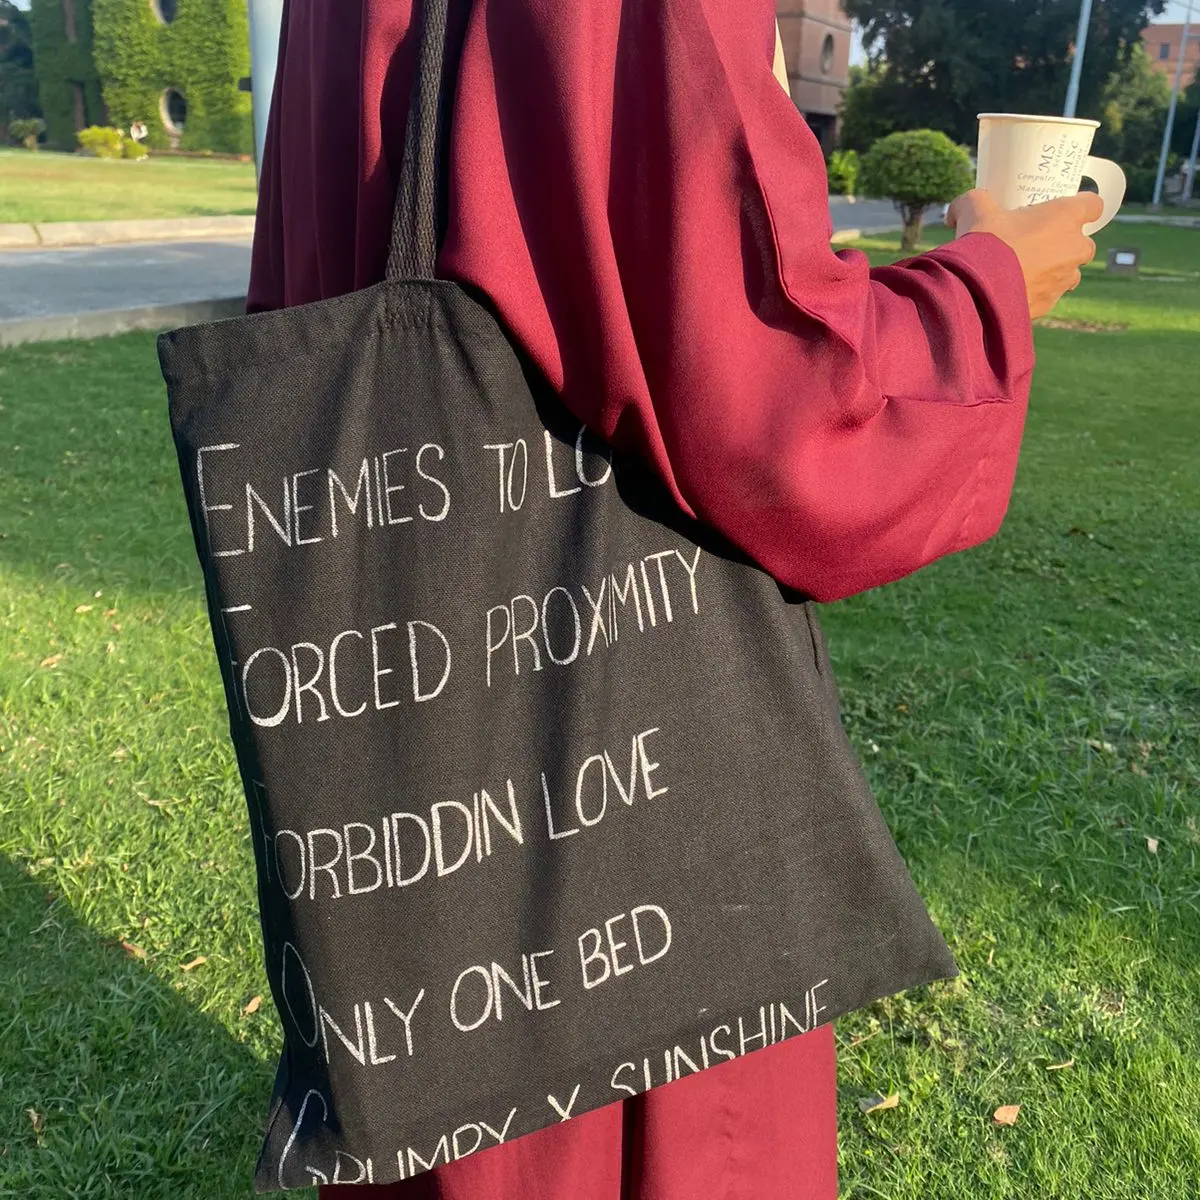 MS
Science
MSc
Computer
Management
ENEMIES TO LO
FORCED PROXIMITY
FORBIDDIN LOVE
ONLY ONE BED
GRUMPY X SUNSHINE